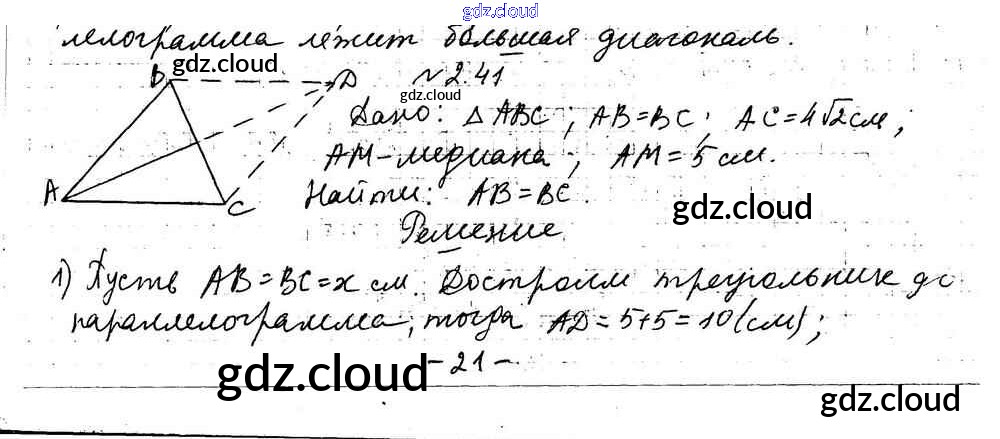 gdz.cloud
лелограмма лежит большая диагональ.
gdz.cloud
B D №2.41
gdz.cloud
Дано: △ABC; AB=BC; AC=4√2см;
AM-медиана; AM=5см.
A C Найти: AB=BC.
gdz.cloud
Решение.
1) Пусть AB=BC=x см. Достроим треугольник до
параллелограмма, тогда AD=5+5=10(см);
-21-
gdz.cloud
gdz.cloud